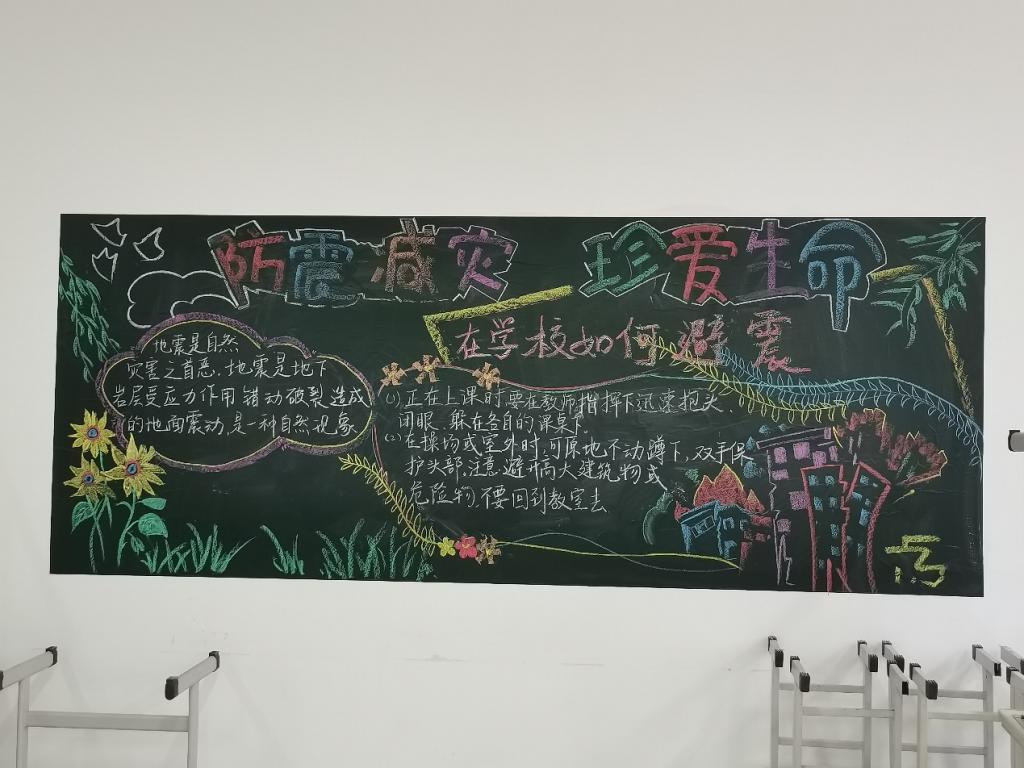 防震减灾 珍爱生命
在学校如何避震
地震是自然
灾害之首恶.地震是地下
岩层受应力作用错动破裂造成
的地面震动,是一种自然现象
(1)正在上课时要在教师指挥下迅速抱头、
闭眼、躲在各自的课桌下.
(2)在操场或室外时,可原地不动蹲下,双手保
护头部,注意避开高大建筑物或
危险物,不要回到教室去